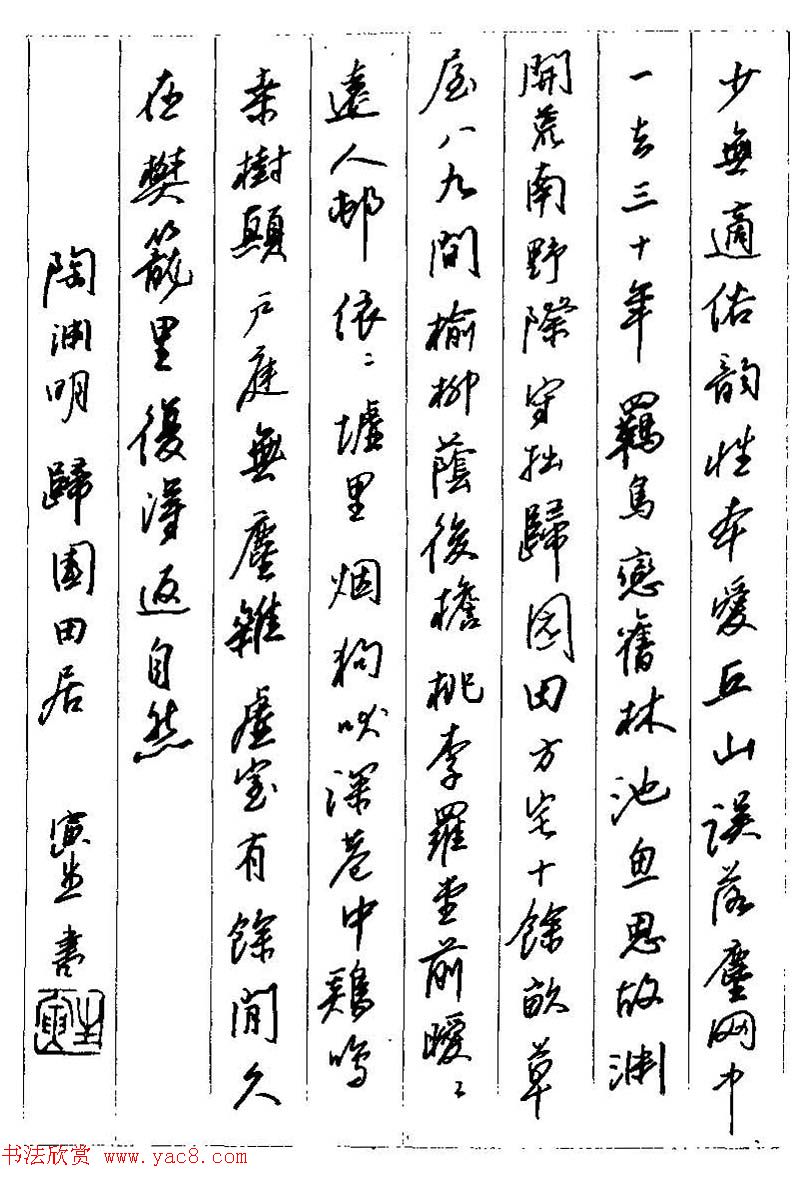 少無適俗韵性本愛丘山误落塵网中
一去三十年羈鳥戀舊林池魚思故渊
開荒南野際守拙歸园田方宅十餘畝草
屋八九間榆柳蔭後檐桃李羅堂前曖〻
遠人邨依〻墟里烟狗吠深巷中鷄鳴
桑樹顛戶庭無塵雜虛室有餘閒久
在樊籠里復得返自然
陶渊明 歸園田居 寅生書
寅生
书法欣赏 www.yac8.com